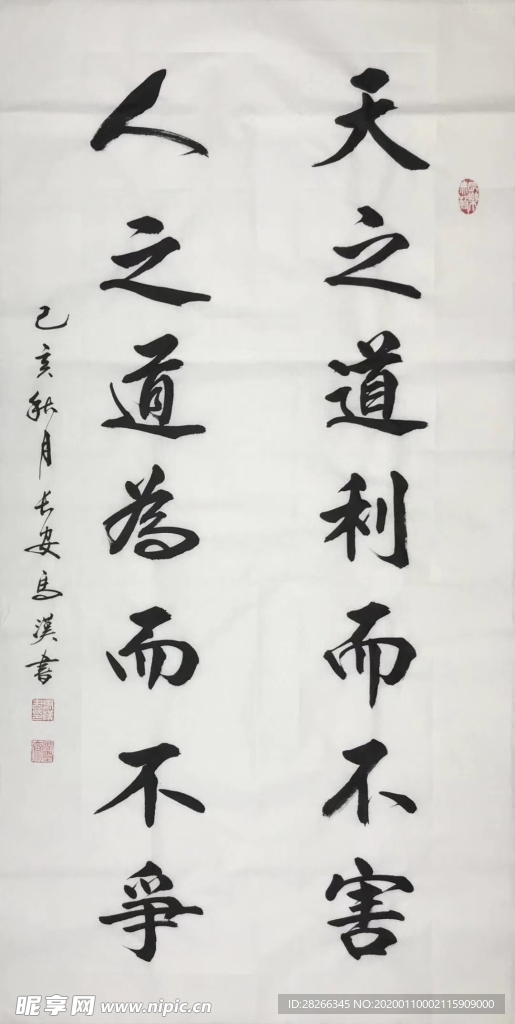 天之道利而不害
人之道為而不爭
己亥秋月长安馬漢書
昵享网 www.nipic.cn
ID:28266345 NO:20200110002115909000